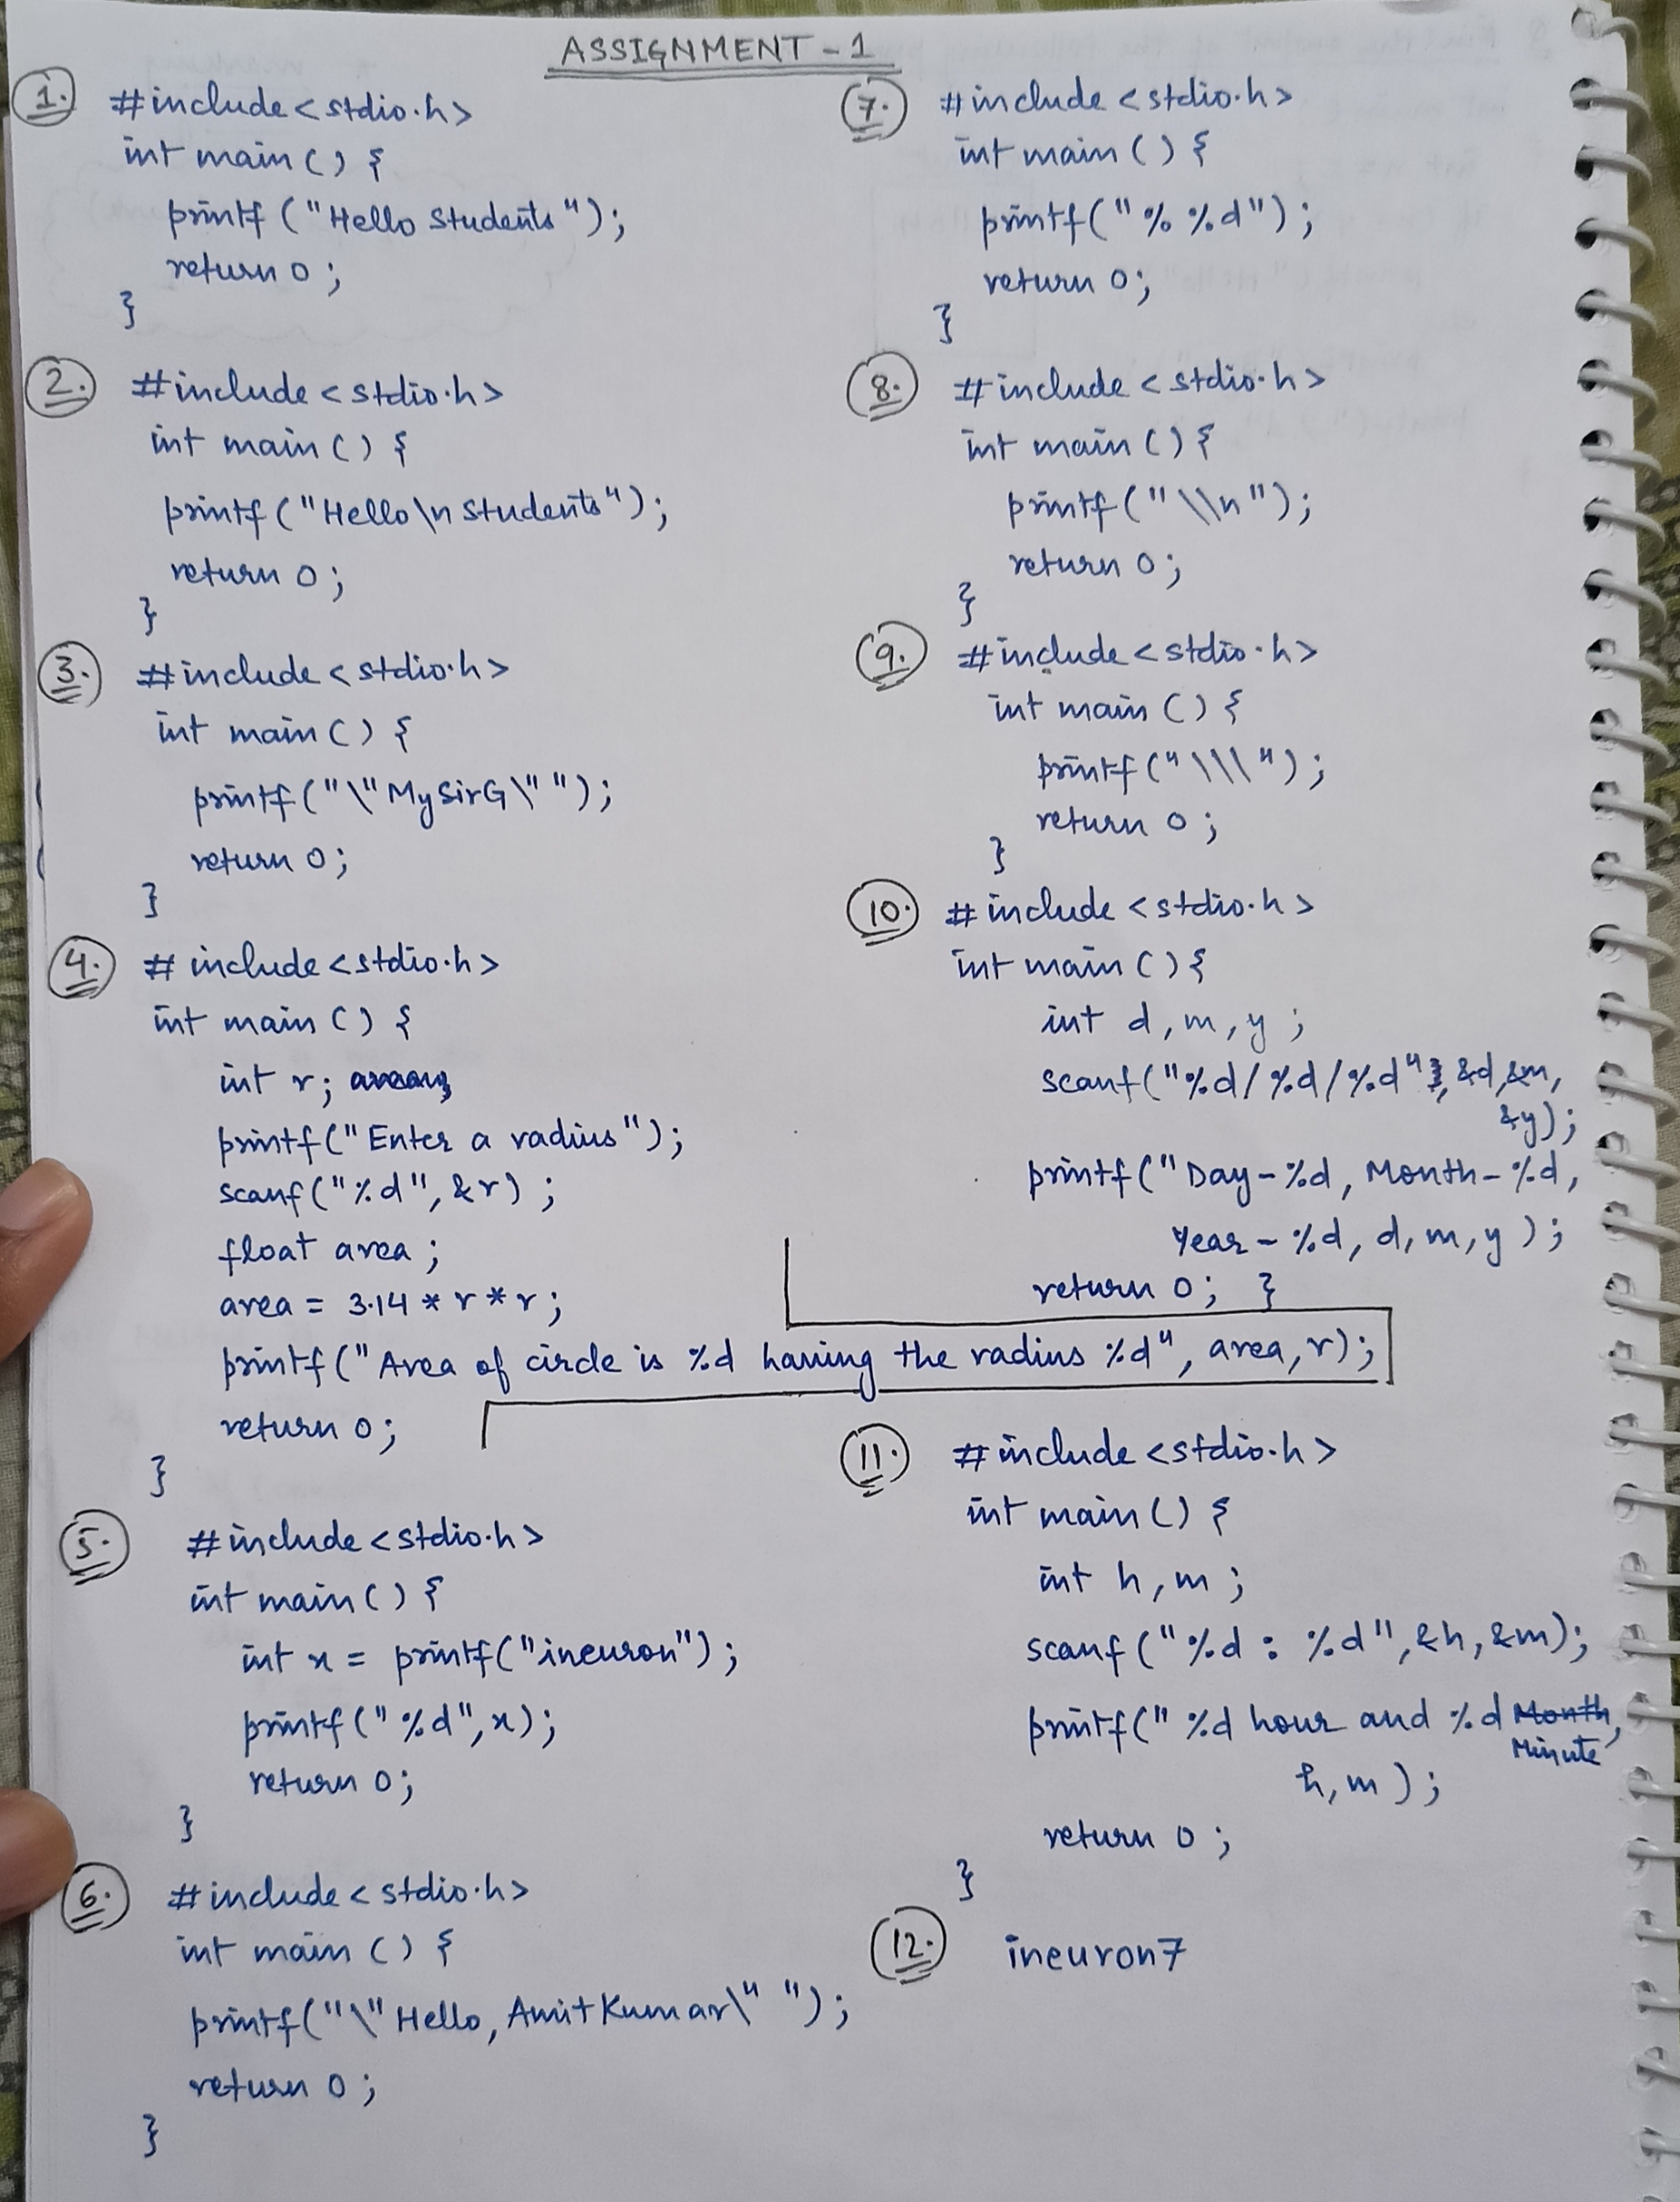 ASSIGNMENT - 1
1. #include <stdio.h>
int main () {
printf ("Hello Students");
return 0 ;
}
2. #include <stdio.h>
int main () {
printf ("Hello \n Students");
return 0 ;
}
3. #include <stdio.h>
int main () {
printf ("\"MySirG\" ");
return 0 ;
}
4. # include <stdio.h>
int main () {
int r ;
printf ("Enter a radius");
scanf ("%d", &r) ;
float area ;
area = 3.14 * r * r ;
printf ("Area of circle is %d having the radius %d", area, r);
return 0 ;
}
5. #include <stdio.h>
int main () {
int x = printf("ineuron");
printf (" %d", x);
return 0 ;
}
6. #include <stdio.h>
int main () {
printf("\"Hello, Amit Kumar\" ");
return 0 ;
}
7. #include <stdio.h>
int main () {
printf(" % %d");
return 0;
}
8. #include <stdio.h>
int main () {
printf (" \\n");
return 0 ;
}
9. #include <stdio.h>
int main () {
printf (" \\\ ");
return 0 ;
}
10. # include <stdio.h>
int main () {
int d, m, y ;
scanf("%d / %d / %d", &d, &m,
&y);
printf ("Day - %d, Month - %d,
Year - %d, d, m, y ) ;
return 0 ; }
11. # include <stdio.h>
int main () {
int h, m ;
scanf (" %d : %d", &h, &m);
printf(" %d hour and %d Month,
Minute
h, m ) ;
return 0 ;
}
12. ineuron7